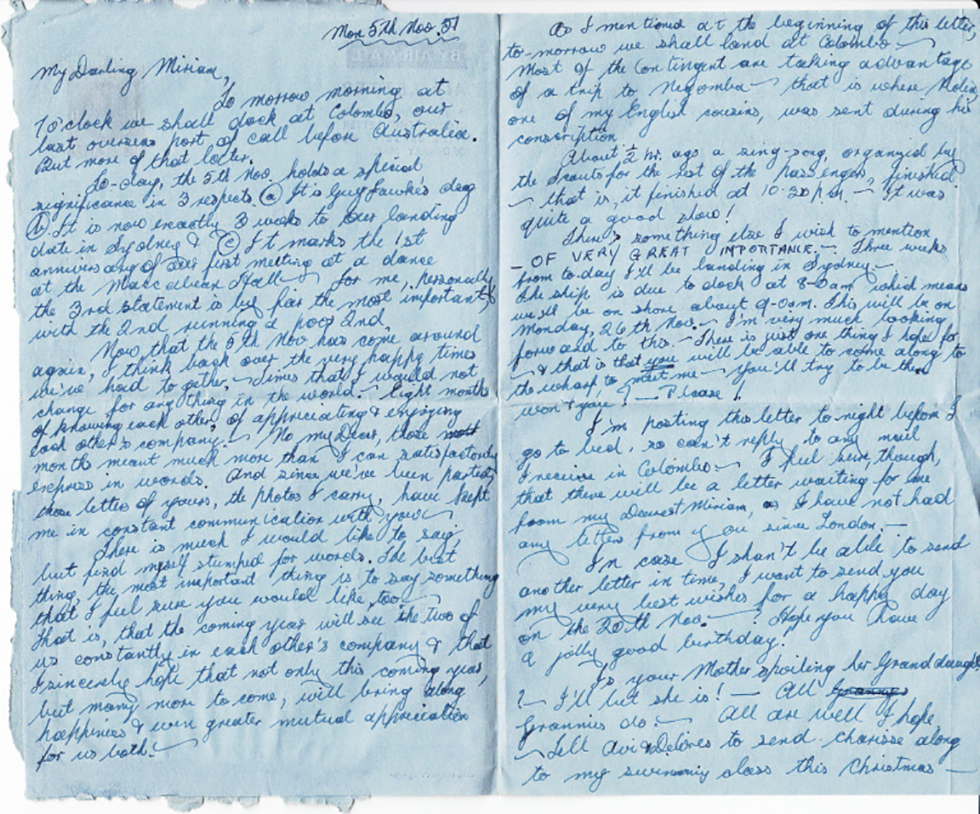 Mon 5th Nov. 51
My Darling Miriam,
To morrow morning at
7 o'clock we shall dock at Colombo, our
last overseas port of call before Australia.
But more of that later.
To-day, the 5th Nov, holds a special
significance in 3 respects. (a) It is Guy Fawke's day
(b) It is now exactly 3 weeks to our landing
date in Sydney & (c) It marks the 1st
anniversary of our first meeting at a dance
at the Maccabean Hall — For me, personally
the 3rd statement is by far the most important,
with the 2nd running a poor 2nd.
Now, that the 5th Nov has come around
again, I think back over the very happy times
we've had to gether, — times that I would not
change for any thing in the world. Eight months
of knowing each other, of appreciating & enjoying
each other's company. — No my Dear, those
month meant much more than I can satisfactorily
express in words. And since we've been parted,
those letters of yours, the photos I carry, have kept
me in constant communication with you —
There is much I would like to say
but find myself stumped for words. The best
thing, the most important thing is to say something
that I feel sure you would like, too —
that is, that the coming year will see the two of
us constantly in each other's company & that
I sincerely hope that not only this coming year,
but many more to come, will bring along
happiness & even greater mutual appreciation
for us both. —
As I mentioned at the beginning of this letter,
to-morrow we shall land at Colombo —
Most of the Contingent are taking advantage
of a trip to Negombo — that is where
one of my English cousins, was sent during his
conscription.
About ½ hr. ago a sing-song, organized by
the Scouts for the rest of the passengers, finished
— that is, it finished at 10-30 p.m. — It was
quite a good show!
There's something else I wish to mention
— OF VERY GREAT IMPORTANCE. — Three weeks
from to-day I'll be landing in Sydney. —
The ship is due to dock at 8-0am which means
we'll be on shore about 9-0am. This will be on
Monday, 26th Nov. — I'm very much looking
forward to this — There is just one thing I hope for
— & that is that you will be able to come along to
the wharf to meet me — you'll try to be there
won't you? — Please!
I'm posting this letter to night before I
go to bed, so can't reply to any mail
I receive in Colombo — I feel sure, though,
that there will be a letter waiting for me
from my Dearest Miriam, as I have not had
any letter from you since London. —
In case I shan't be able to send
another letter in time, I want to send you
my very best wishes for a happy day
on the Nov. — Hope you have
a jolly good birthday!
Is your Mother spoiling her Grand daughter
? — I'll bet she is! — All
Grannies do. — All are well I hope.
— Tell Avi & Delores to send Charisse along
to my swimming class this Christmas —